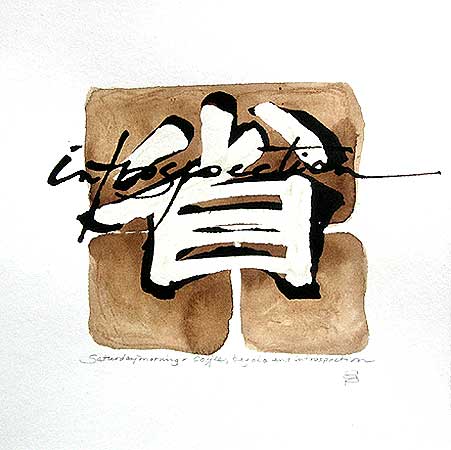 省
introspection
Saturday morning + coffee, bagels and introspection